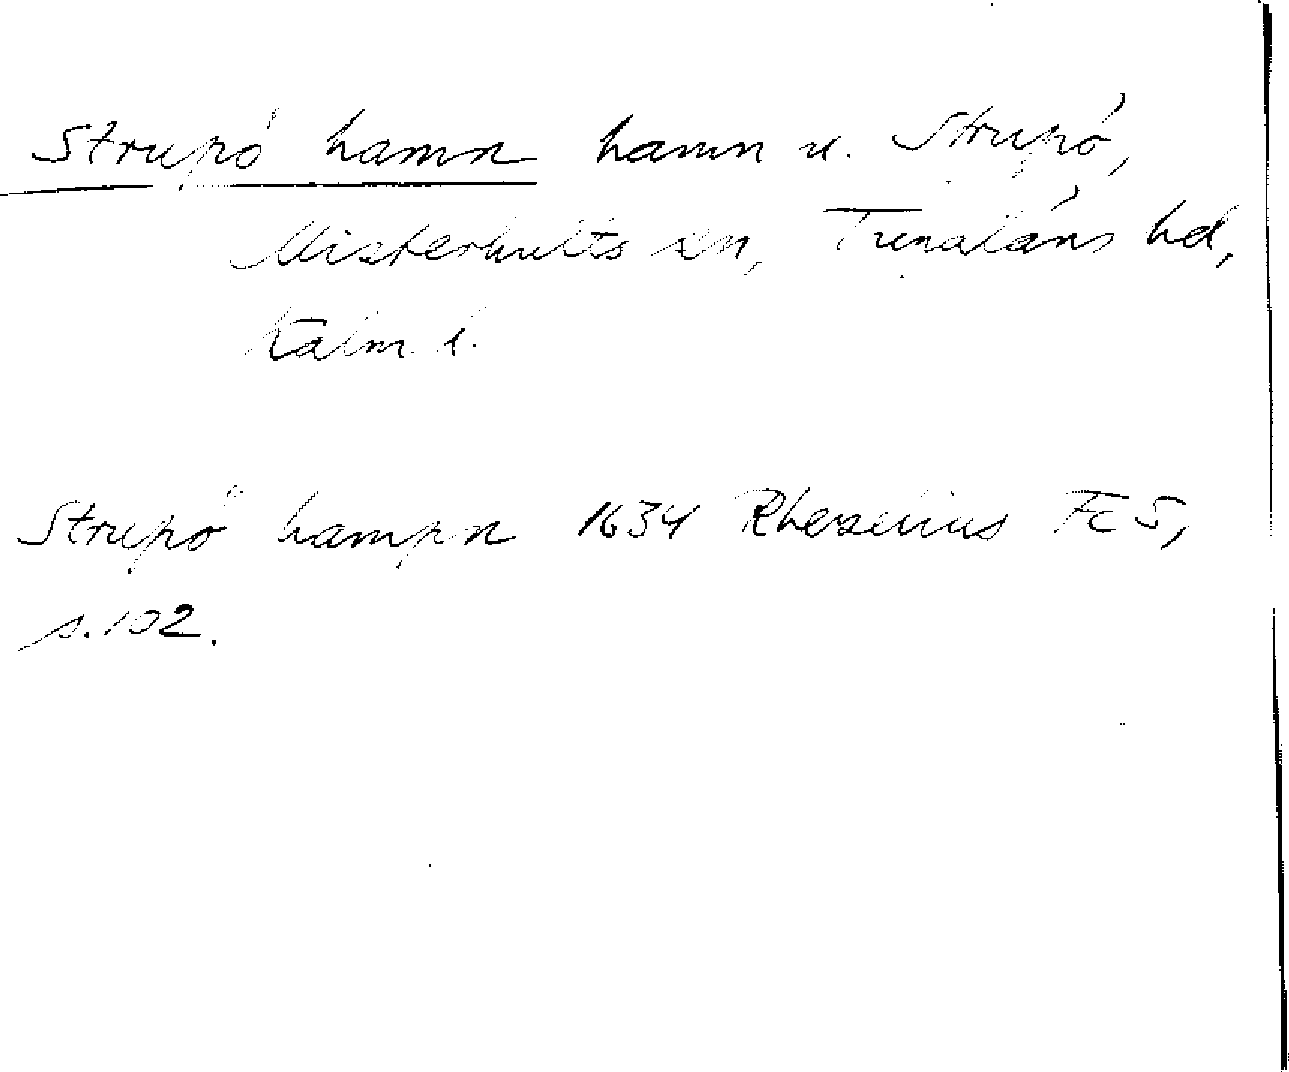 Strupö hamn hamn v. Strupö,
Misterhults sn, Tunaläns hd,
Kalm l.
Strupö hampn 1634 Rhezelius FC 5,
s. 102.